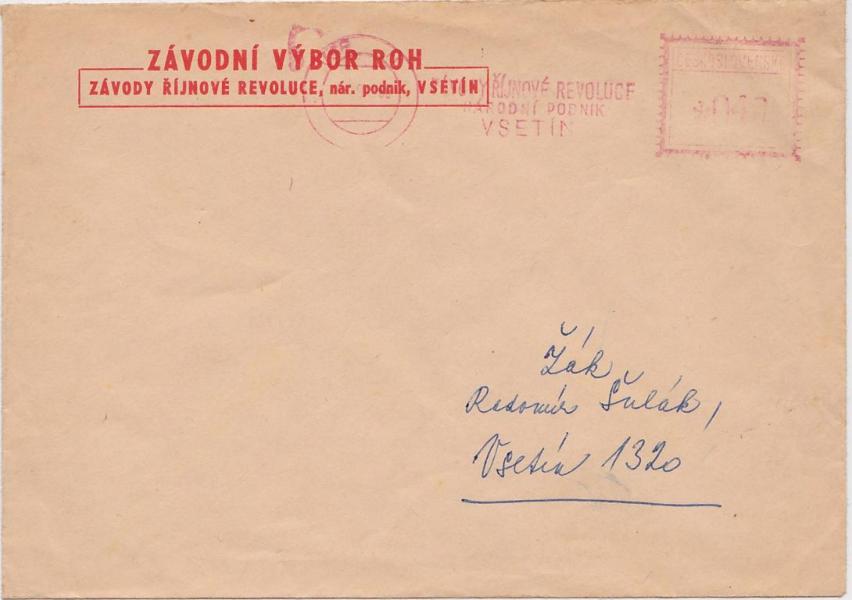 ZÁVODNÍ VÝBOR ROH
ZÁVODY ŘÍJNOVÉ REVOLUCE, nár. podnik, VSETÍN
ŘÍJNOVÉ REVOLUCE
NÁRODNÍ PODNIK
VSETÍN
ČESKOSLOVENSKO
Žák
Radomír Šulák,
Vsetín 1320